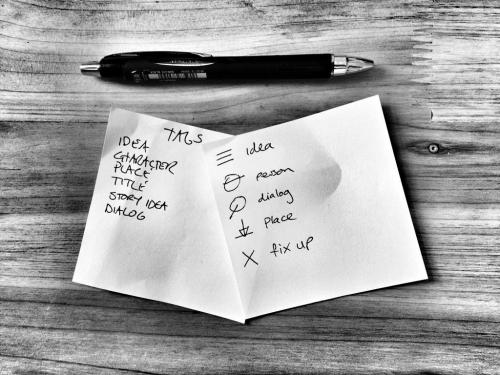 TAGS
IDEA
CHARACTER
PLACE
TITLE
STORY IDEA
DIALOG
idea
person
dialog
place
fix up